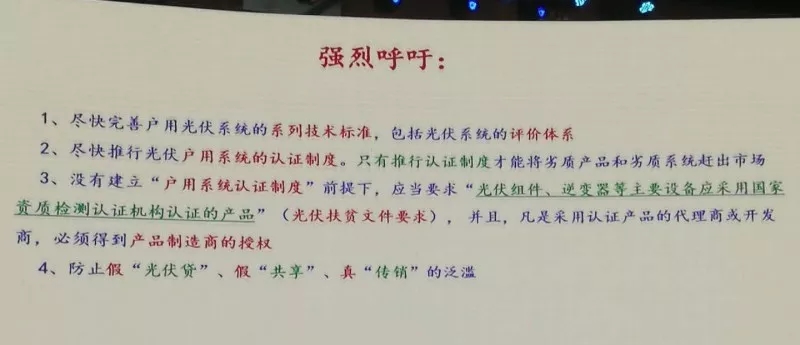 强烈呼吁：
1、尽快完善户用光伏系统的系列技术标准，包括光伏系统的评价体系
2、尽快推行光伏户用系统的认证制度。只有推行认证制度才能将劣质产品和劣质系统赶出市场
3、没有建立“户用系统认证制度”前提下，应当要求“光伏组件、逆变器等主要设备应采用国家
资质检测认证机构认证的产品”（光伏扶贫文件要求），并且，凡是采用认证产品的代理商或开发
商，必须得到产品制造商的授权
4、防止假“光伏贷”、假“共享”、真“传销”的泛滥